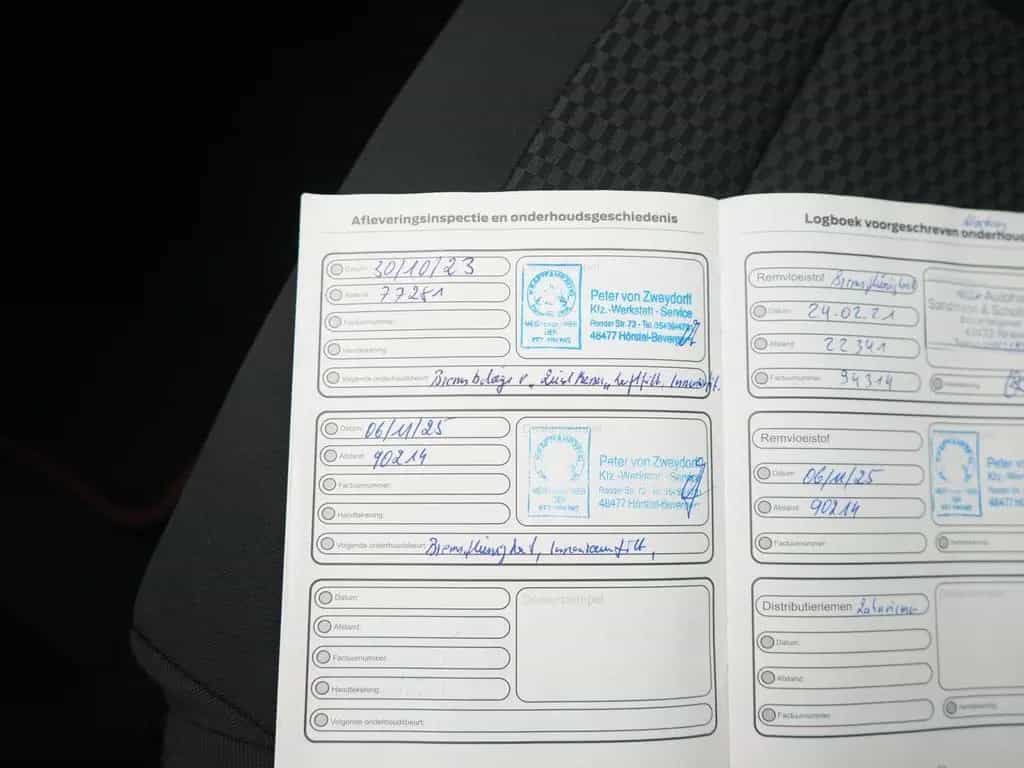 Afleveringsinspectie en onderhoudsgeschiedenis
Datum: 30/10/23
Afstand: 77281
Factuurnummer:
Handtekening:
Peter von Zweydorff
Kfz.-Werkstatt - Service
48477 Hörstel-Bevergern
Volgende onderhoudsbeurt: Bremsbeläge Luftfilt. Innenfilt.
Datum: 06/11/25
Afstand: 90214
Factuurnummer:
Handtekening:
Peter von Zweydorff
Kfz.-Werkstatt - Service
48477 Hörstel-Bevergern
Volgende onderhoudsbeurt: Bremsflüssigkeit, Innenraumfilt,
Datum:
Afstand:
Factuurnummer:
Handtekening:
Dealerstempel
Volgende onderhoudsbeurt:
Logboek voorgeschreven onderhoud
Remvloeistof Bremsflüssigkeit
Datum: 24.02.21
Afstand: 22341
Factuurnummer: 34314
Remvloeistof
Datum: 06/11/25
Afstand: 90214
Factuurnummer:
Handtekening:
Peter von
Kfz.-We
48477
Distributieriemen Zahnriemen
Datum:
Afstand:
Factuurnummer:
Handtekening: